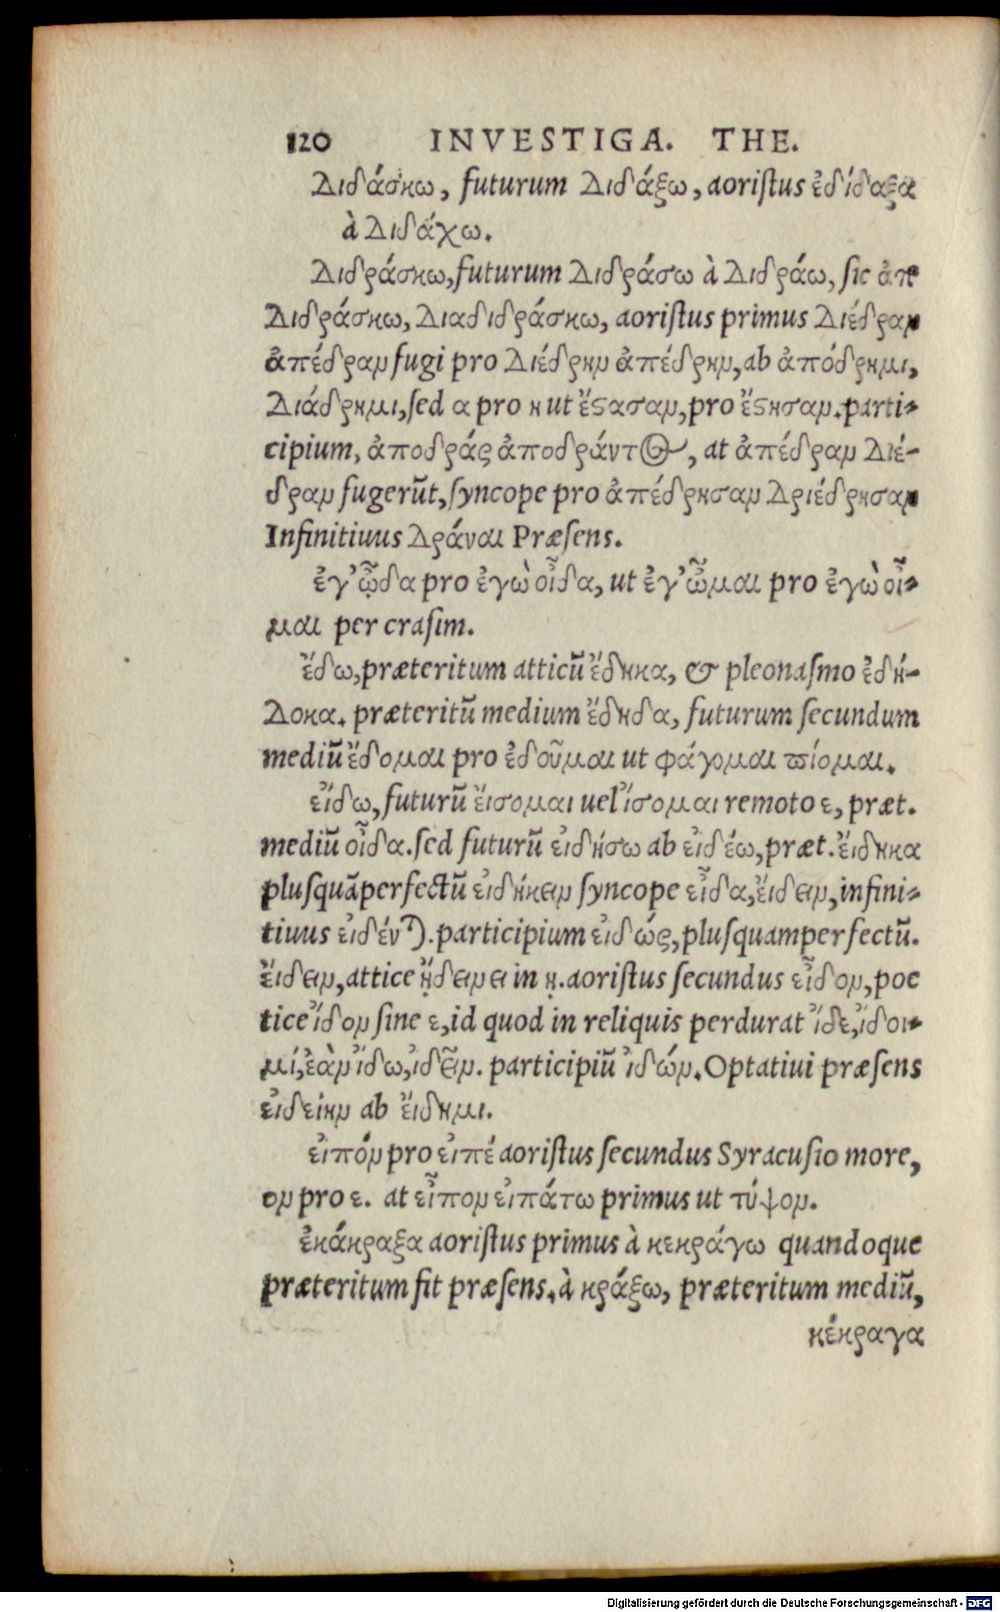 120 INVESTIGA. THE.
Διδάσκω, futurum Διδάξω, aoristus ἐδίδαξα
à Διδάχω.
Διδράσκω, futurum Διδράσω à Διδράω, sic ἀπ
Διδράσκω, Διαδιδράσκω, aoristus primus Διέδραν
ἀπέδραν fugi pro Διέδρην ἀπέδρην, ab ἀπόδρημι,
Διάδρημι, sed α pro η ut ἔϛασαν, pro ἔϛησαν. parti-
cipium, ἀποδράς ἀποδράντος, at ἀπέδραν Διέ-
δραν fugerūt, syncope pro ἀπέδρησαν Δριέδρησαν
Infinitiuus Δράναι Præsens.
ἐγ’ ᾦδα pro ἐγὼ οἶδα, ut ἐγ’ ὦμαι pro ἐγὼ οἶ-
μαι per crasim.
ἔδω, præteritum atticū ἔδηκα, & pleonasmo ἐδή-
Δοκα. præteritū medium ἔδηδα, futurum secundum
mediū ἔδομαι pro ἐδοῦμαι ut φάγομαι πίομαι.
εἴδω, futurū ἔισομαι uel ἴσομαι remoto ε, præt.
mediū οἶδα. sed futurū εἰδήσω ab εἰδέω, præt. ἔιδηκα
plusquāperfectū εἰδήκειν syncope εἶδα, ἔιδειν, infini-
tiuus εἰδέναι. participium εἰδώς, plusquamperfectū.
ἔιδειν, attice ᾔδειν ει in ῃ. aoristus secundus εἶδον, poe
tice ἴδον sine ε, id quod in reliquis perdurat ἴδε, ἴδοι-
μί, ἐὰν ἴδω, ἰδεῖν. participiū ἰδών. Optatiui præsens
εἰδείην ab ἔιδημι.
εἰπόν pro εἰπέ aoristus secundus Syracusio more,
ον pro ε. at εἶπον εἰπάτω primus ut τύψον.
ἐκάκραξα aoristus primus à κεκράγω quandoque
præteritum fit præsens. à κράξω, præteritum mediū,
κέκραγα
Digitalisierung gefördert durch die Deutsche Forschungsgemeinschaft - DFG